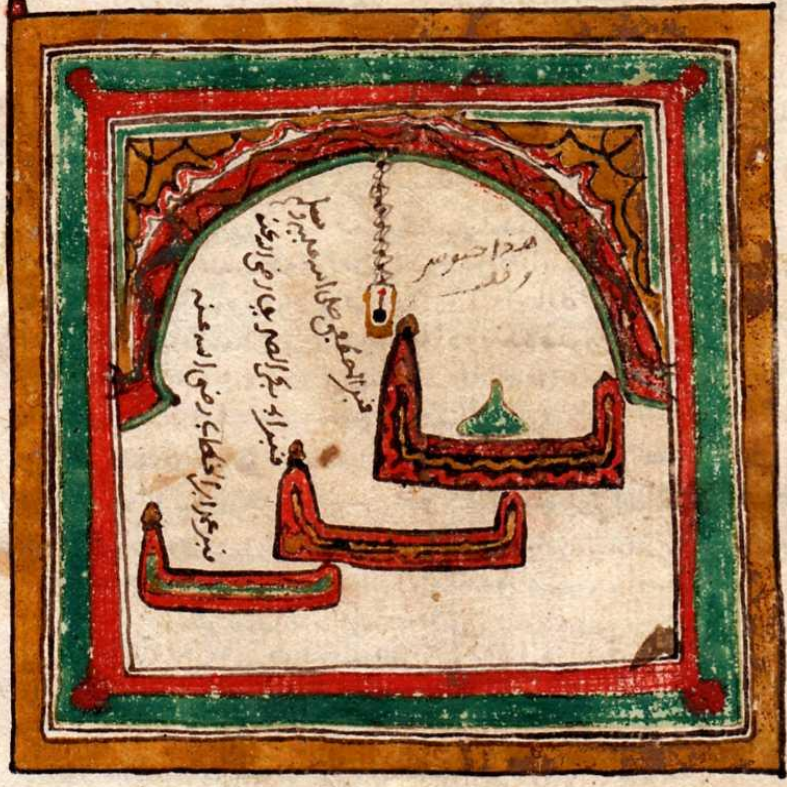 هذا
قبر المصطفى صلى الله عليه وسلم
قبر ابو بكر الصديق رضي الله عنه
قبر عمر ابن الخطاب رضي الله عنه